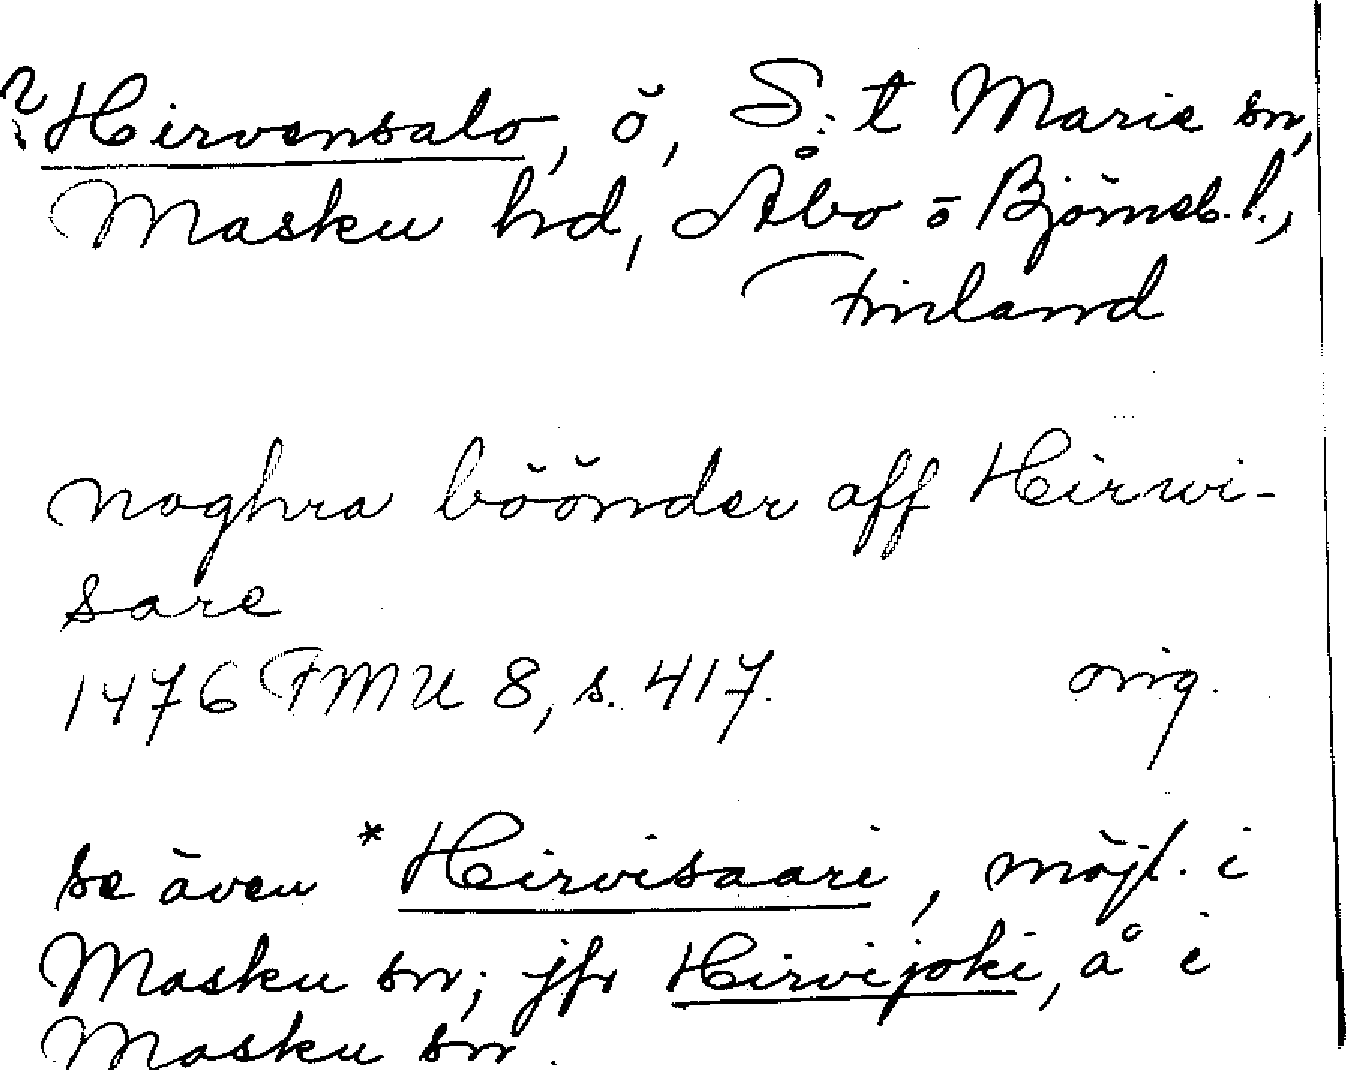 ? Hirvensalo, ö, S:t Marie sn,
Masku hd, Åbo o Björneb. l.,
Finland
noghra böönder aff Hirwi-
sare
1476 FMU 8, s. 417. orig.
se även *Hirvisaari, möjl. i
Masku sn; jfr Hirvijoki, å i
Masku sn.